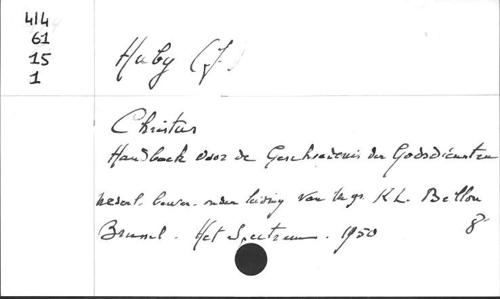 414
61
15
1
Huby (J.)
Christus
Handboek voor de Geschiedenis der Godsdiensten
nederl. bewer. onder leiding van Mgr. K.L. Bellon
Brussel. Het Spectrum. 1950 8